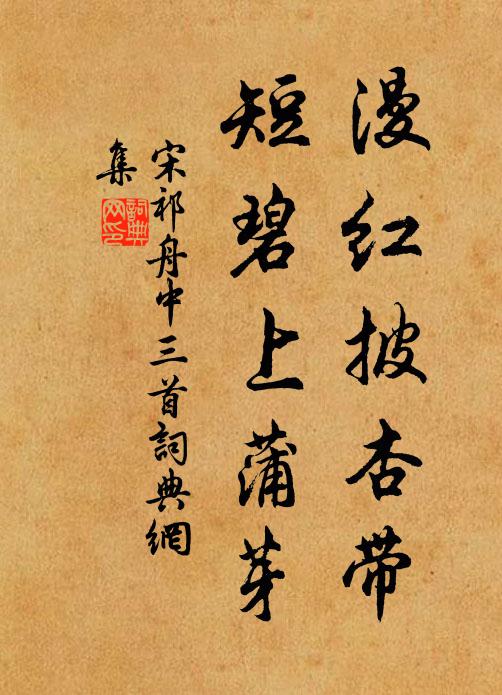 漫红披杏带
短碧上蒲芽
宋祁舟中三首詞典網
集
詞典
网印